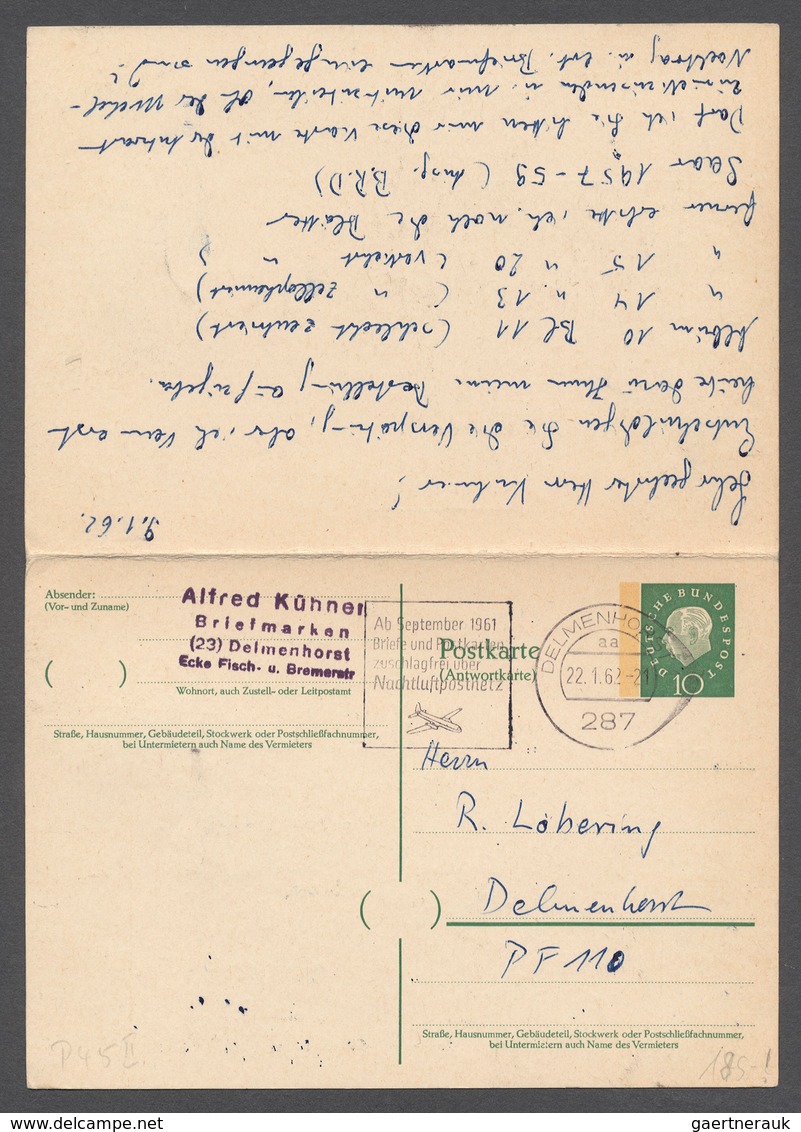 9.1.62.
Sehr geehrter Herr Kühner!
Entschuldigen Sie die Verspätung, aber ich kann erst
heute dazu Ihnen meine Bestellung aufzugeben.
Album 10 Bl 11 (schlecht zentriert)
" 14 u. 13 ( " zellophaniert)
" 15 u 20 (verkehrt " )
ferner erbitte ich noch die Blätter
Saar 1957-59 (Ausg. B.R.D)
Darf ich Sie bitten mir diese Karte mit der Antwort
zurückzusenden u. mir mitzuteilen, ob der Michel-
Nachtrag u. Briefmarken eingegangen sind?
Absender:
(Vor- und Zuname)
Alfred Kühner
Briefmarken
(23) Delmenhorst
Ecke Fisch- u. Bremerstr
( )
Wohnort, auch Zustell- oder Leitpostamt
Straße, Hausnummer, Gebäudeteil, Stockwerk oder Postschließfachnummer,
bei Untermietern auch Name des Vermieters
Ab September 1961
Briefe und Postkarten
zuschlagfrei über
Nachtluftpostnetz
Postkarte
(Antwortkarte)
DELMENHORST
aa
22.1.62-21
287
DEUTSCHE BUNDESPOST
10
Herrn
R. Löbering
( ) Delmenhorst
PF 110
Straße, Hausnummer, Gebäudeteil, Stockwerk oder Postschließfachnummer,
bei Untermietern auch Name des Vermieters
P45 II
185-!
delcampe.net
gaertnerauk